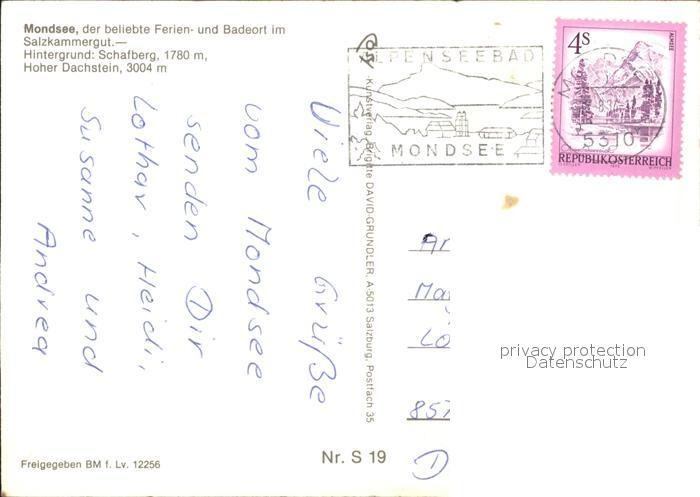 Mondsee, der beliebte Ferien- und Badeort im
Salzkammergut.—
Hintergrund: Schafberg, 1780 m,
Hoher Dachstein, 3004 m
ALPENSEEBAD
MONDSEE
4S
ALMSEE
5310
REPUBLIK ÖSTERREICH
Kunstverlag Brigitte DAVID-GRÜNDLER, A-5013 Salzburg, Postfach 35
Viele Grüße
vom Mondsee
senden Dir
Lothar, Heidi,
Susanne und
Andrea
Ma
Lö
857
D
privacy protection
Datenschutz
Freigegeben BM f. Lv. 12256
Nr. S 19